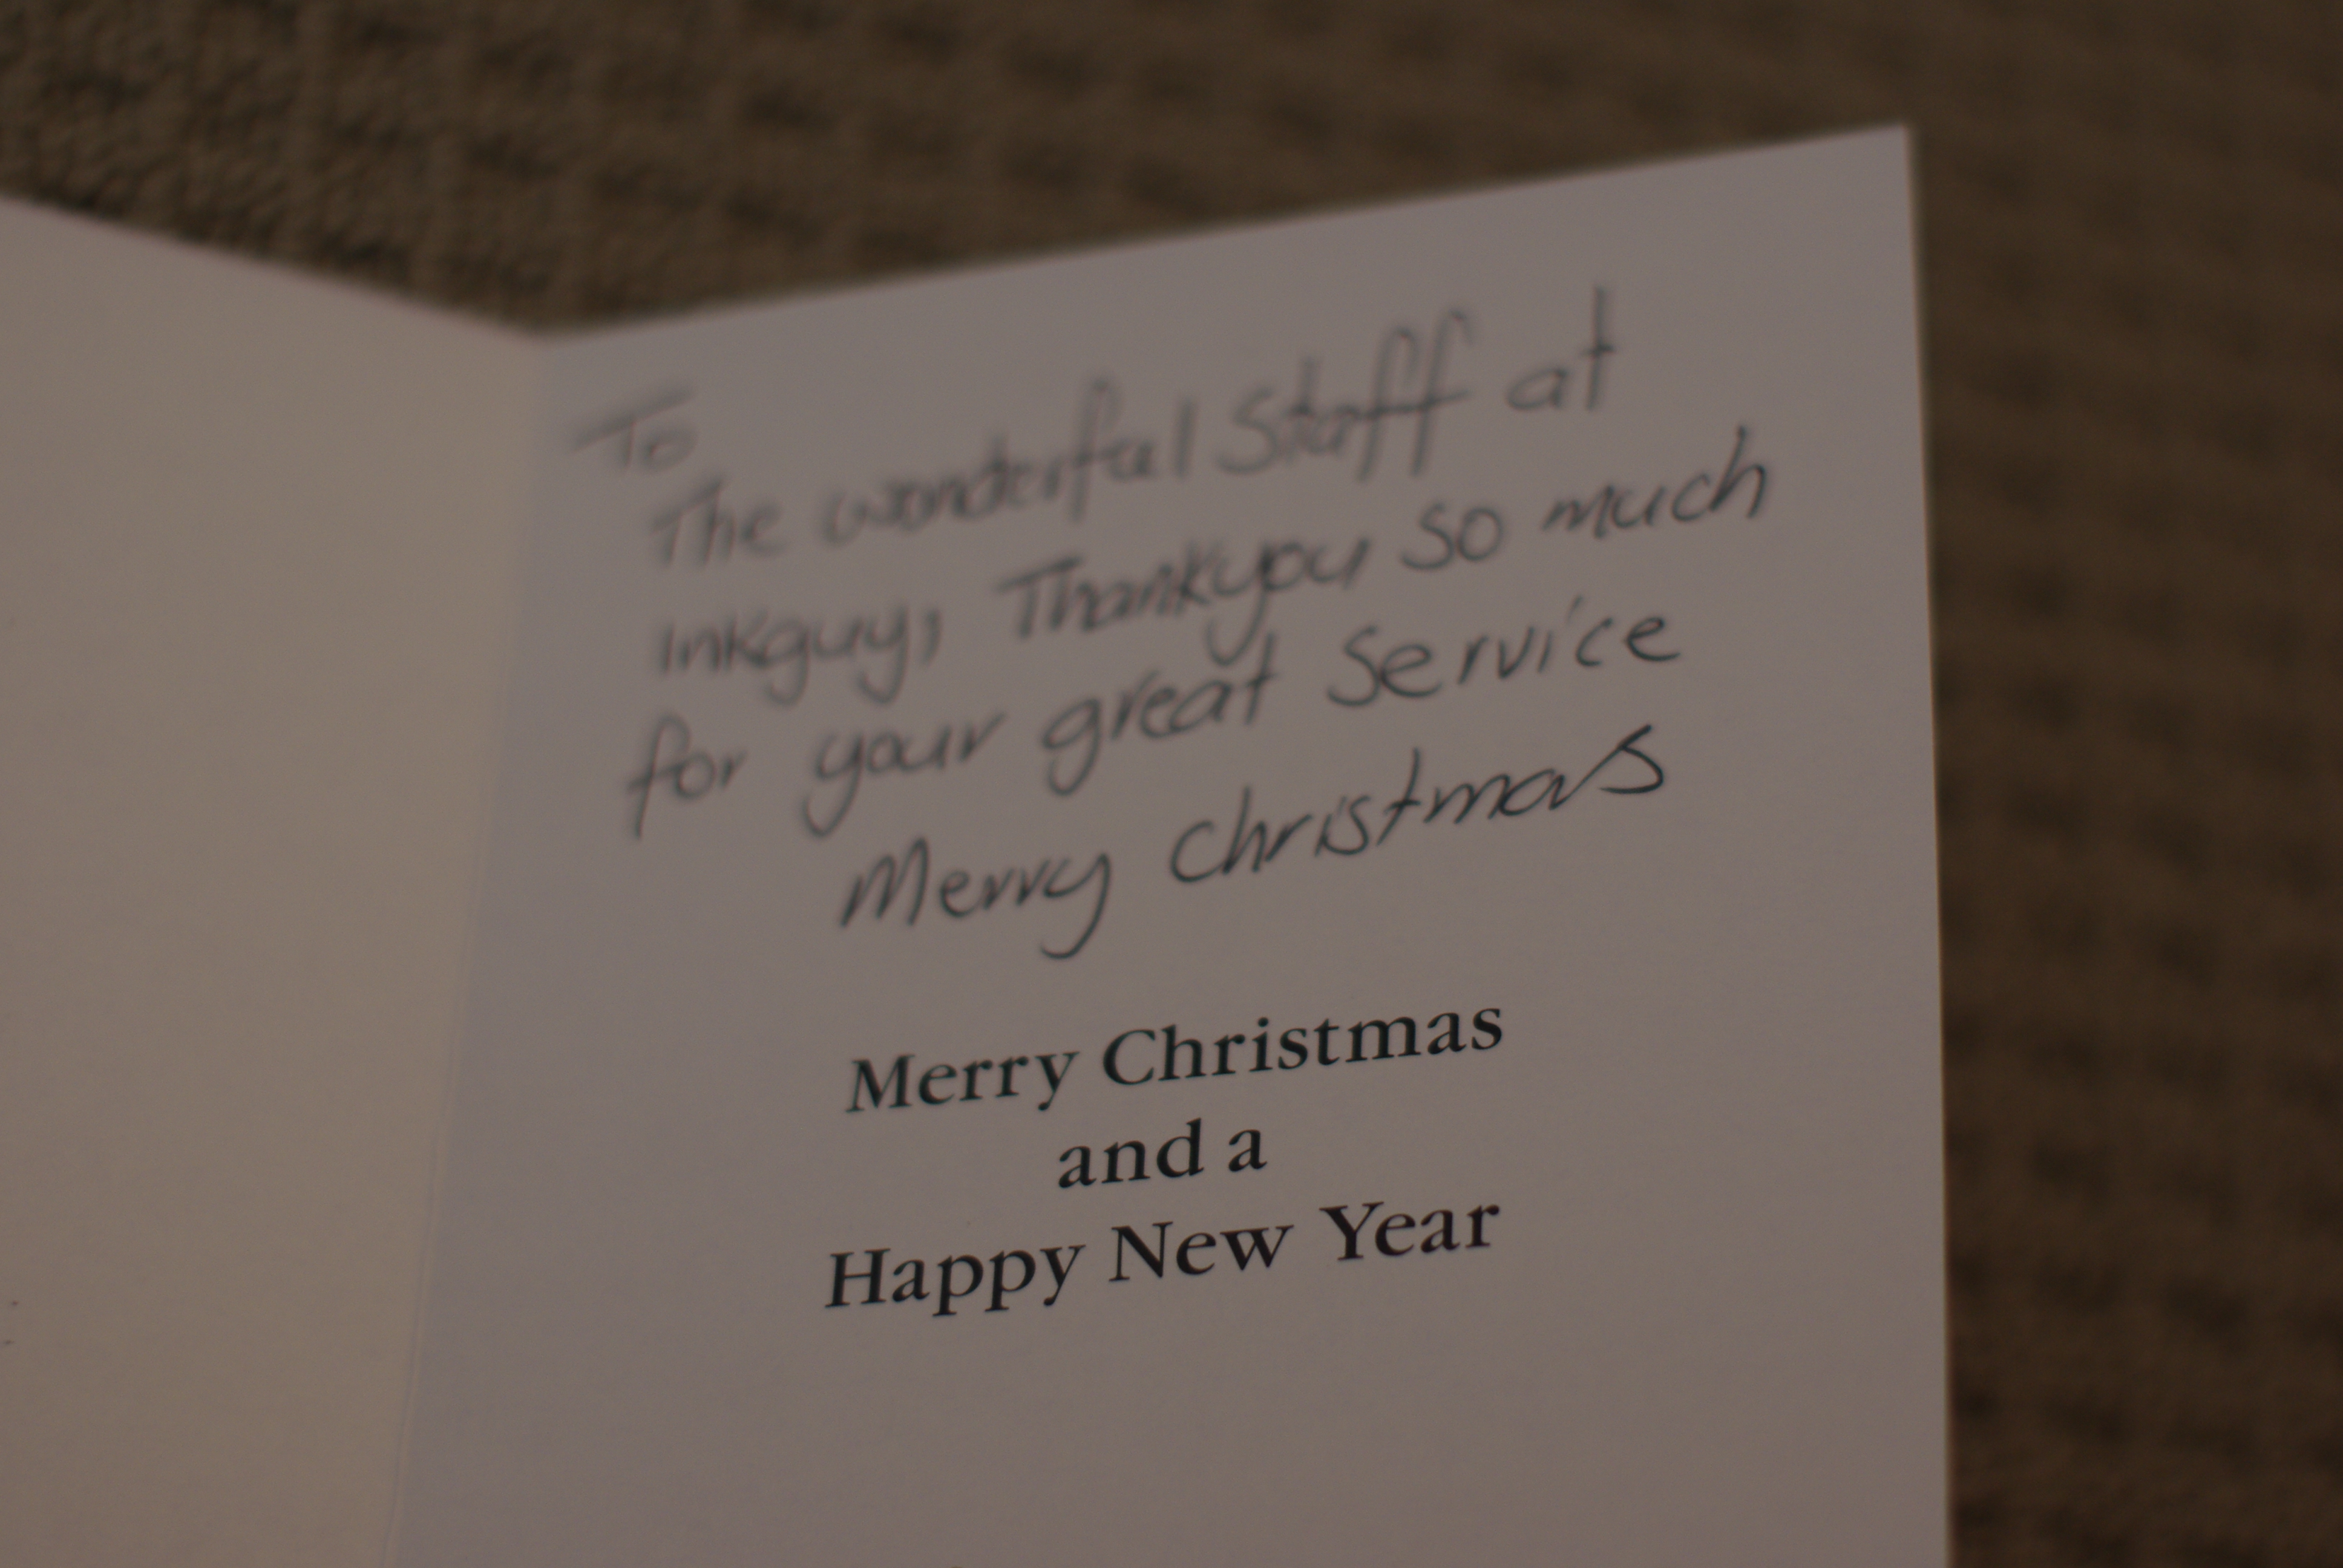 To
The wonderful Staff at
inkguy, Thankyou so much
for your great Service
Merry Christmas
Merry Christmas
and a
Happy New Year